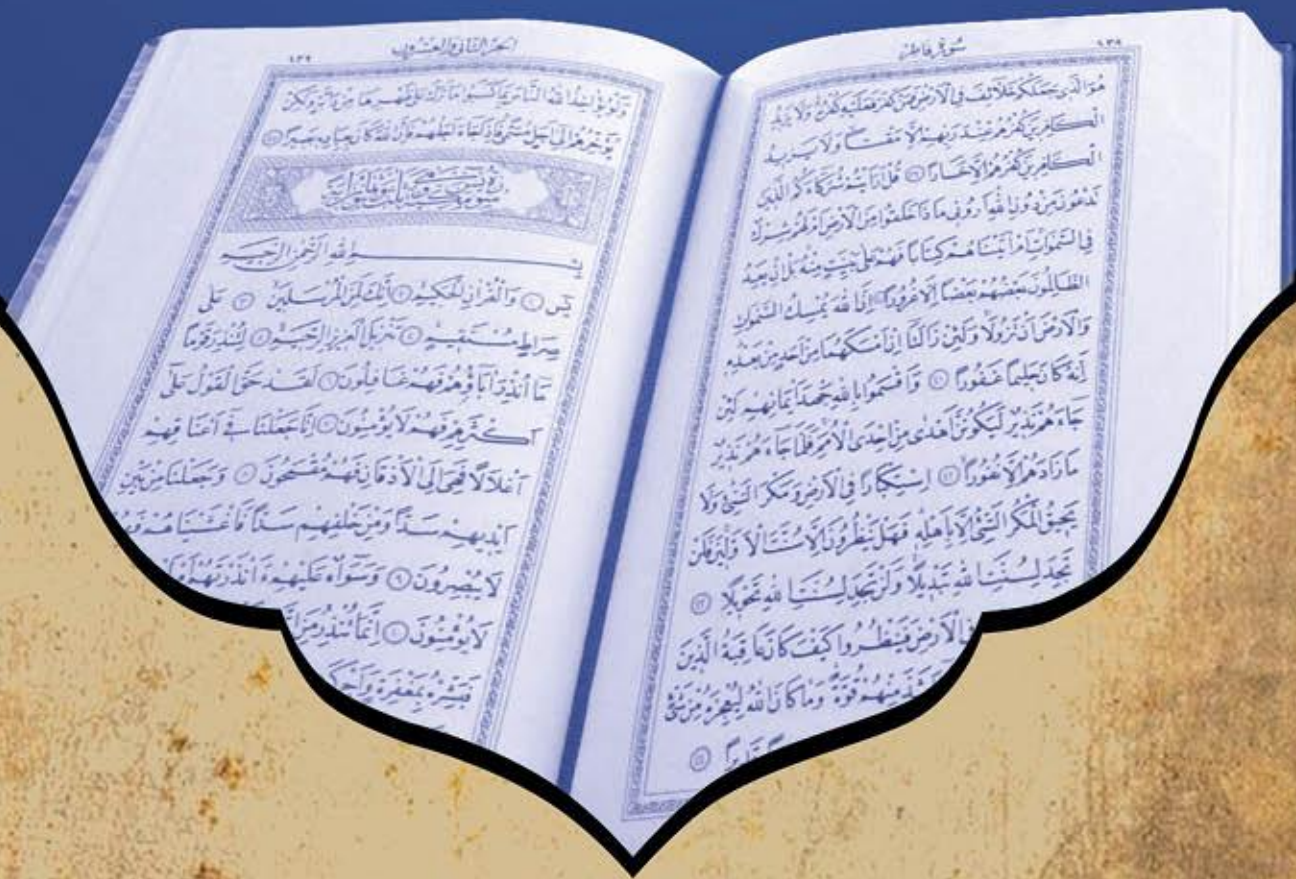 سورة فاطر
هُوَ الَّذِي جَعَلَكُمْ خَلَائِفَ فِي الْأَرْضِ فَمَنْ كَفَرَ فَعَلَيْهِ كُفْرُهُ وَلَا يَزِيدُ
الْكَافِرِينَ كُفْرُهُمْ عِنْدَ رَبِّهِمْ إِلَّا مَقْتًا وَلَا يَزِيدُ
الْكَافِرِينَ كُفْرُهُمْ إِلَّا خَسَارًا قُلْ أَرَأَيْتُمْ شُرَكَاءَكُمُ الَّذِينَ
تَدْعُونَ مِنْ دُونِ اللَّهِ أَرُونِي مَاذَا خَلَقُوا مِنَ الْأَرْضِ أَمْ لَهُمْ شِرْكٌ
فِي السَّمَوَاتِ أَمْ آتَيْنَاهُمْ كِتَابًا فَهُمْ عَلَى بَيِّنَتٍ مِنْهُ بَلْ إِنْ يَعِدُ
الظَّالِمُونَ بَعْضُهُمْ بَعْضًا إِلَّا غُرُورًا إِنَّ اللَّهَ يُمْسِكُ السَّمَوَاتِ
وَالْأَرْضَ أَنْ تَزُولَا وَلَئِنْ زَالَتَا إِنْ أَمْسَكَهُمَا مِنْ أَحَدٍ مِنْ بَعْدِهِ
إِنَّهُ كَانَ حَلِيمًا غَفُورًا وَأَقْسَمُوا بِاللَّهِ جَهْدَ أَيْمَانِهِمْ لَئِنْ
جَاءَهُمْ نَذِيرٌ لَيَكُونُنَّ أَهْدَى مِنْ إِحْدَى الْأُمَمِ فَلَمَّا جَاءَهُمْ نَذِيرٌ
مَا زَادَهُمْ إِلَّا نُفُورًا اسْتِكْبَارًا فِي الْأَرْضِ وَمَكْرَ السَّيِّئِ وَلَا
يَحِيقُ الْمَكْرُ السَّيِّئُ إِلَّا بِأَهْلِهِ فَهَلْ يَنْظُرُونَ إِلَّا سُنَّتَ الْأَوَّلِينَ فَلَنْ
تَجِدَ لِسُنَّتِ اللَّهِ تَبْدِيلًا وَلَنْ تَجِدَ لِسُنَّتِ اللَّهِ تَحْوِيلًا ﴿٤٣﴾
الْأَرْضِ فَيَنْظُرُوا كَيْفَ كَانَ عَاقِبَةُ الَّذِينَ
مِنْهُمْ قُوَّةً وَمَا كَانَ اللَّهُ لِيُعْجِزَهُ مِنْ شَيْءٍ
الجزء الثاني والعشرون
وَلَوْ يُؤَاخِذُ اللَّهُ النَّاسَ بِمَا كَسَبُوا مَا تَرَكَ عَلَى ظَهْرِهَا مِنْ دَابَّةٍ وَلَكِنْ
يُؤَخِّرُهُمْ إِلَى أَجَلٍ مُسَمًّى فَإِذَا جَاءَ أَجَلُهُمْ فَإِنَّ اللَّهَ كَانَ بِعِبَادِهِ بَصِيرًا
بِسْمِ اللَّهِ الرَّحْمَنِ الرَّحِيمِ
يس ﴿١﴾ وَالْقُرْآنِ الْحَكِيمِ ﴿٢﴾ إِنَّكَ لَمِنَ الْمُرْسَلِينَ ﴿٣﴾ عَلَى
صِرَاطٍ مُسْتَقِيمٍ ﴿٤﴾ تَنْزِيلَ الْعَزِيزِ الرَّحِيمِ ﴿٥﴾ لِتُنْذِرَ قَوْمًا
مَا أُنْذِرَ آبَاؤُهُمْ فَهُمْ غَافِلُونَ ﴿٦﴾ لَقَدْ حَقَّ الْقَوْلُ عَلَى
أَكْثَرِهِمْ فَهُمْ لَا يُؤْمِنُونَ ﴿٧﴾ إِنَّا جَعَلْنَا فِي أَعْنَاقِهِمْ
أَغْلَالًا فَهِيَ إِلَى الْأَذْقَانِ فَهُمْ مُقْمَحُونَ ﴿٨﴾ وَجَعَلْنَا مِنْ بَيْنِ
أَيْدِيهِمْ سَدًّا وَمِنْ خَلْفِهِمْ سَدًّا فَأَغْشَيْنَاهُمْ فَهُمْ
لَا يُبْصِرُونَ ﴿٩﴾ وَسَوَاءٌ عَلَيْهِمْ ءَأَنْذَرْتَهُمْ
لَا يُؤْمِنُونَ ﴿١٠﴾ إِنَّمَا تُنْذِرُ مَنِ
فَبَشِّرْهُ بِمَغْفِرَةٍ وَأَجْرٍ